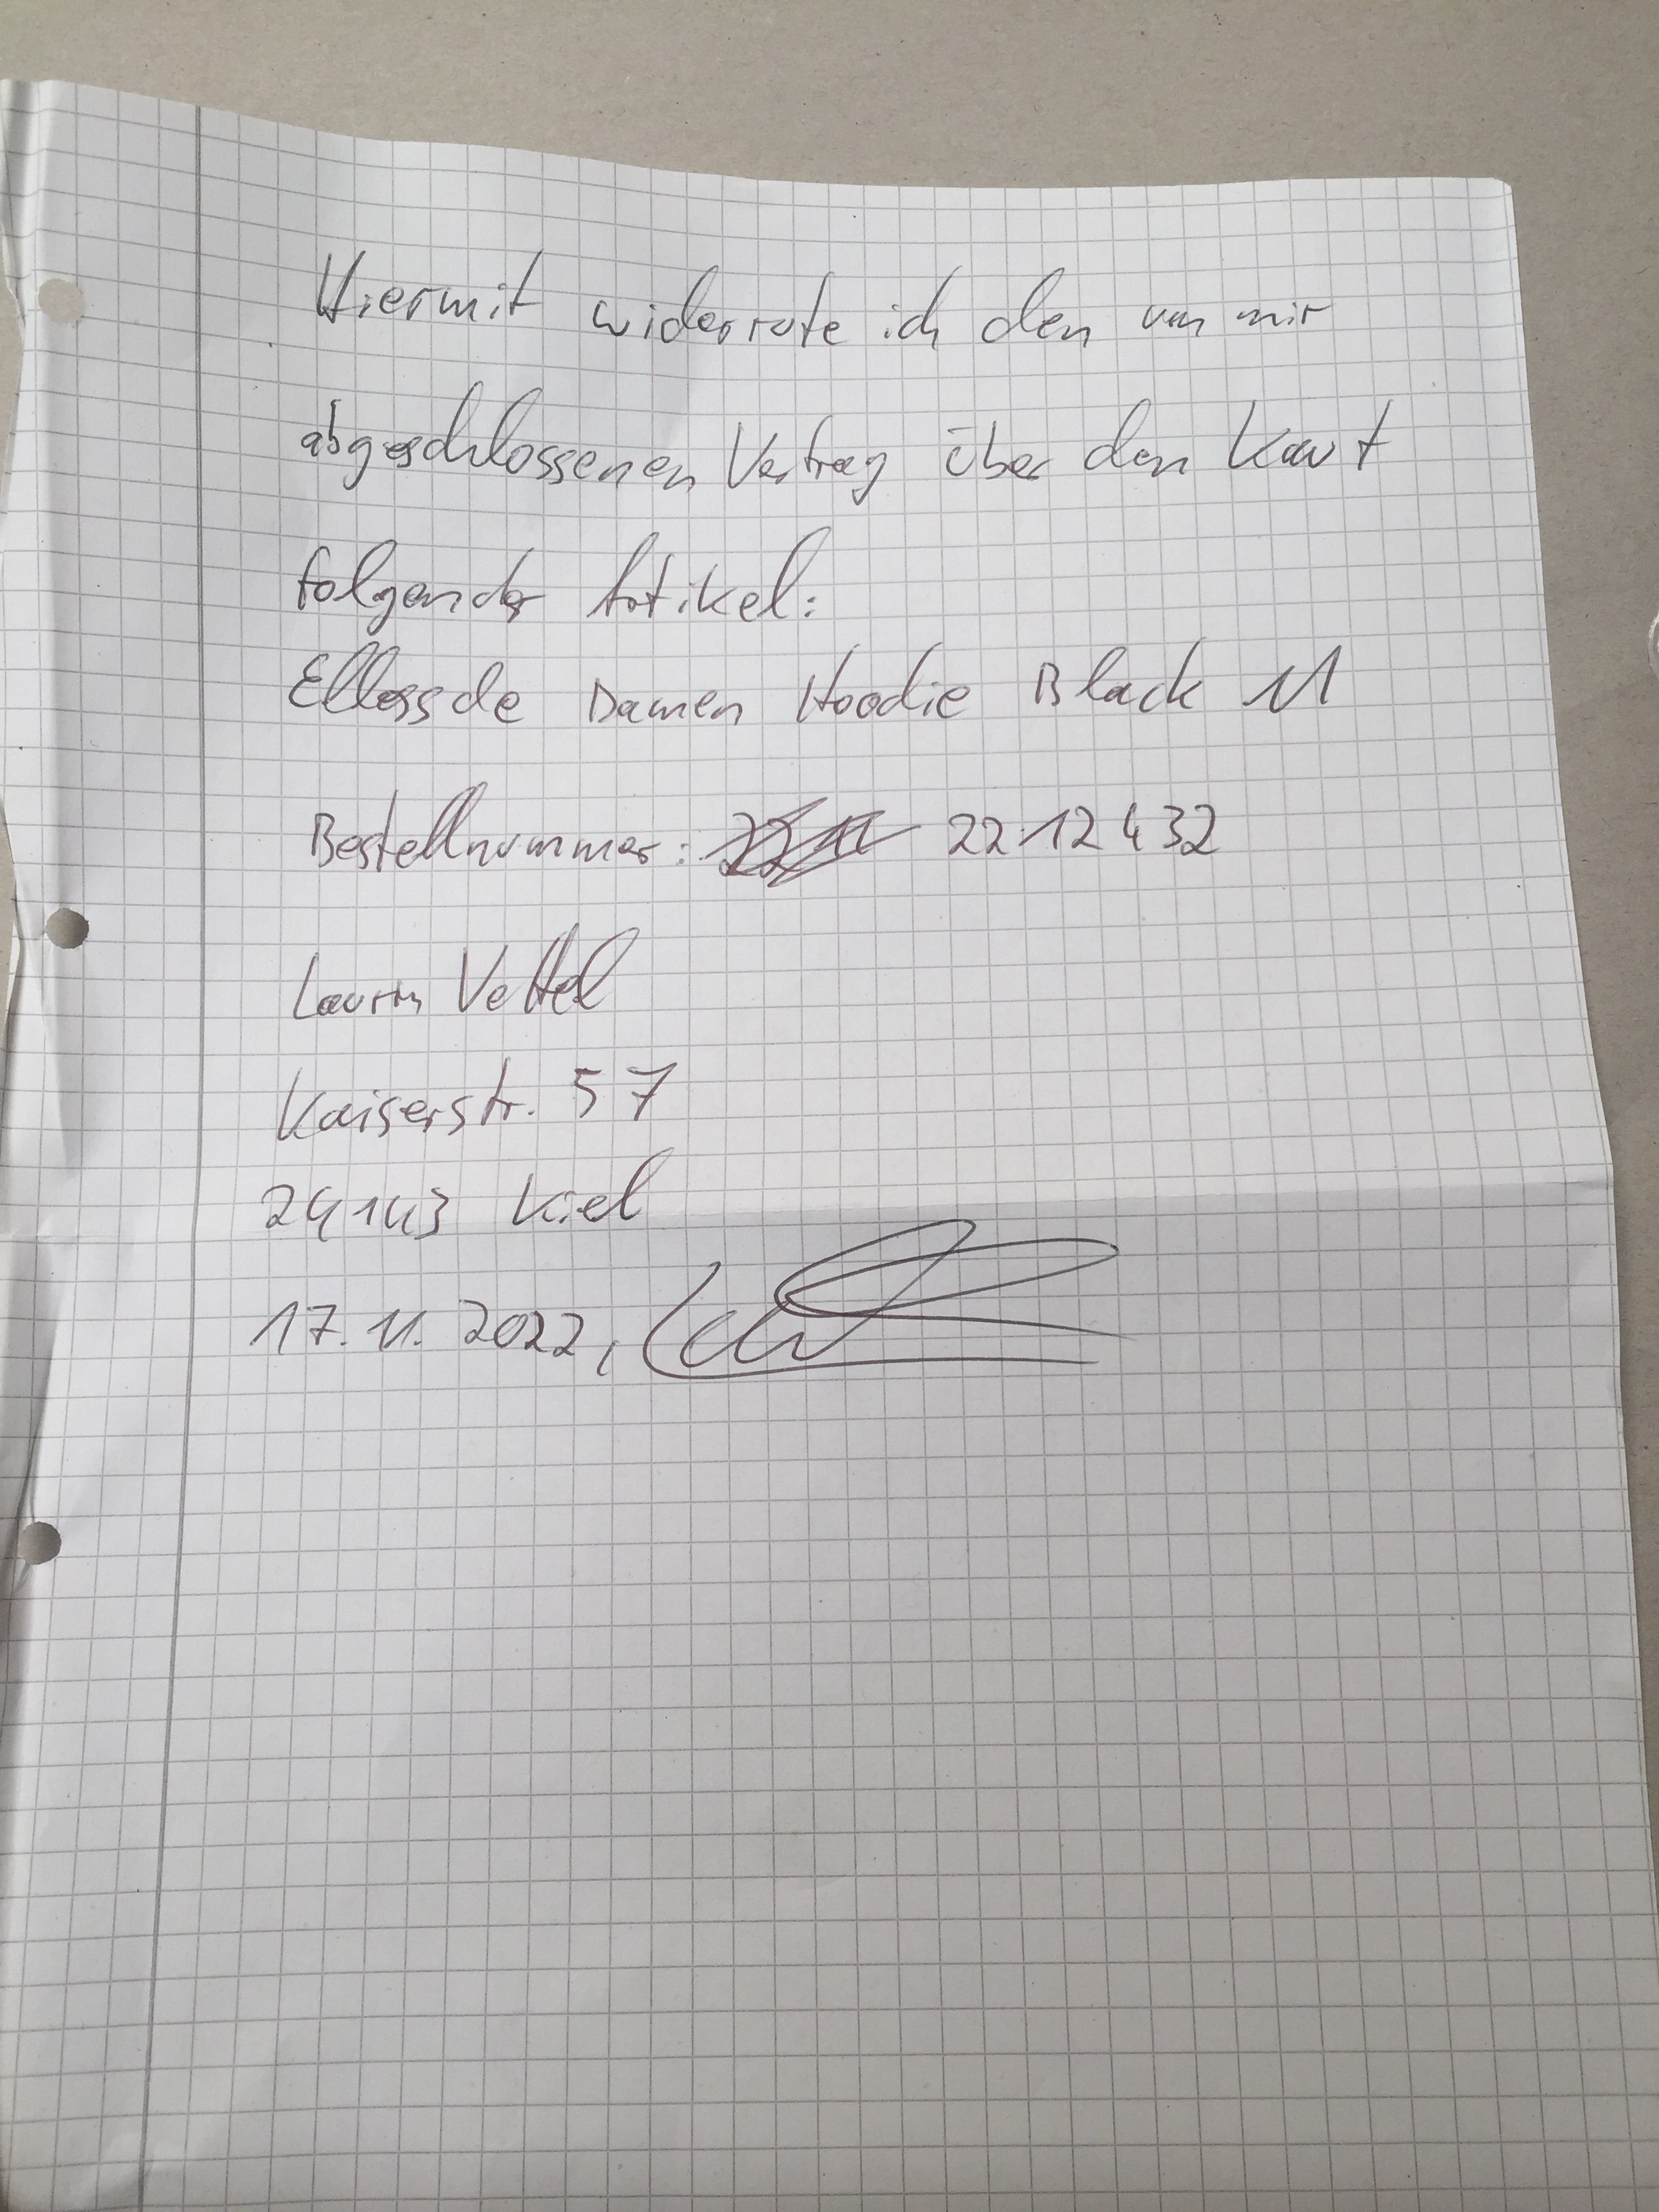 Hiermit widerrufe ich den von mir
abgeschlossenen Vertrag über den Kauf
folgender Artikel:
Damen Hoodie Black M
Bestellnummer: 2212432
Laurin Vettel
Kaiserstr. 57
24143 Kiel
17.11.2022,